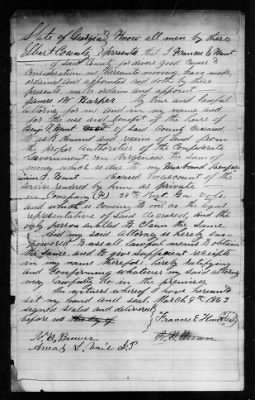 State of Georgia } Know all men by these
Elbert County } presents that I Frances E Hunt
of Said County for divers good causes &
consideration me hereunto moving, have made,
ordained and appointed and doth by these
presents, make ordain and appoint
James W Harper my true and lawful
attorney for me and in my name and
for the use and benefit of the heirs of
Hunt of Said County deceased
to ask demand and receive of and from
the proper authorities of the Confederate
Government in Virginia the sum of
money which is due to my husband
Hunt deceased on account of the
service rendered by him as private
in Company (F) 38th Regt Ga Vols
and which is coming to me as the legal
representative of said deceased, and the
only person entitled to claim the same.
And my said Attorney is hereby
empowered to use all lawful means to obtain
the same and to give sufficient receipts
in my name therefor, hereby ratifying
and confirming whatever my said attorney
may lawfully do in the premises.
In witness whereof I have hereunto
set my hand and seal March 9th 1863
signed sealed and delivered
before us } Frances E Hunt
Bowers